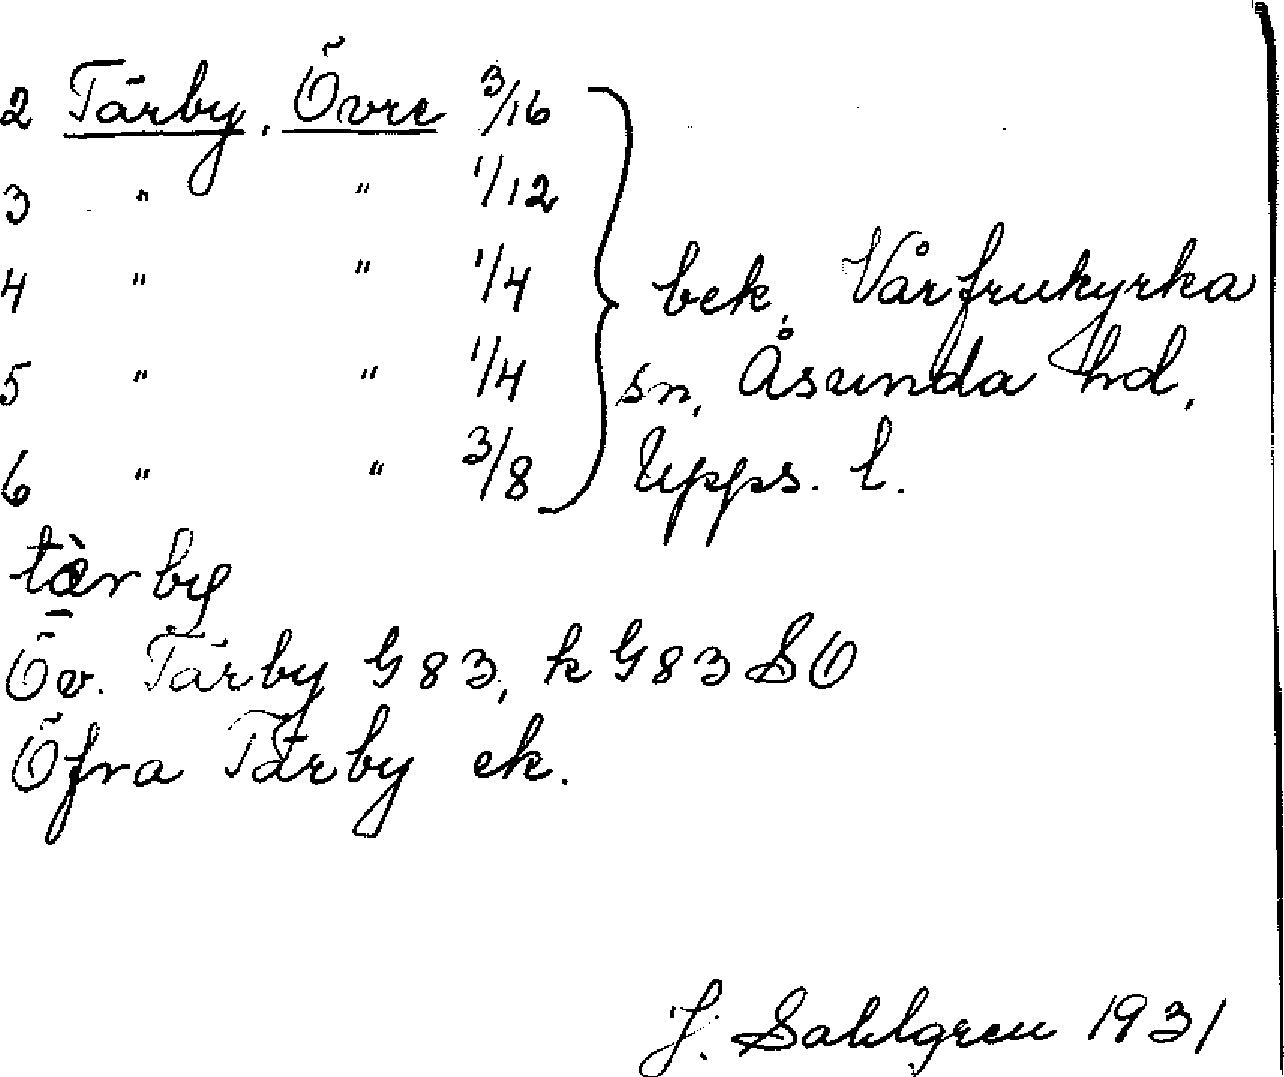 2 Tärby, Övre 3/16
3 " " 1/12
4 " " 1/4
5 " " 1/4
6 " " 3/8
bek. Vårfrukyrka
sn, Åsunda hd,
Upps. l.
tæ̀rby
Öv. Tärby G83, k G83 SO
Öfra Tärby ek.
J. Sahlgren 1931